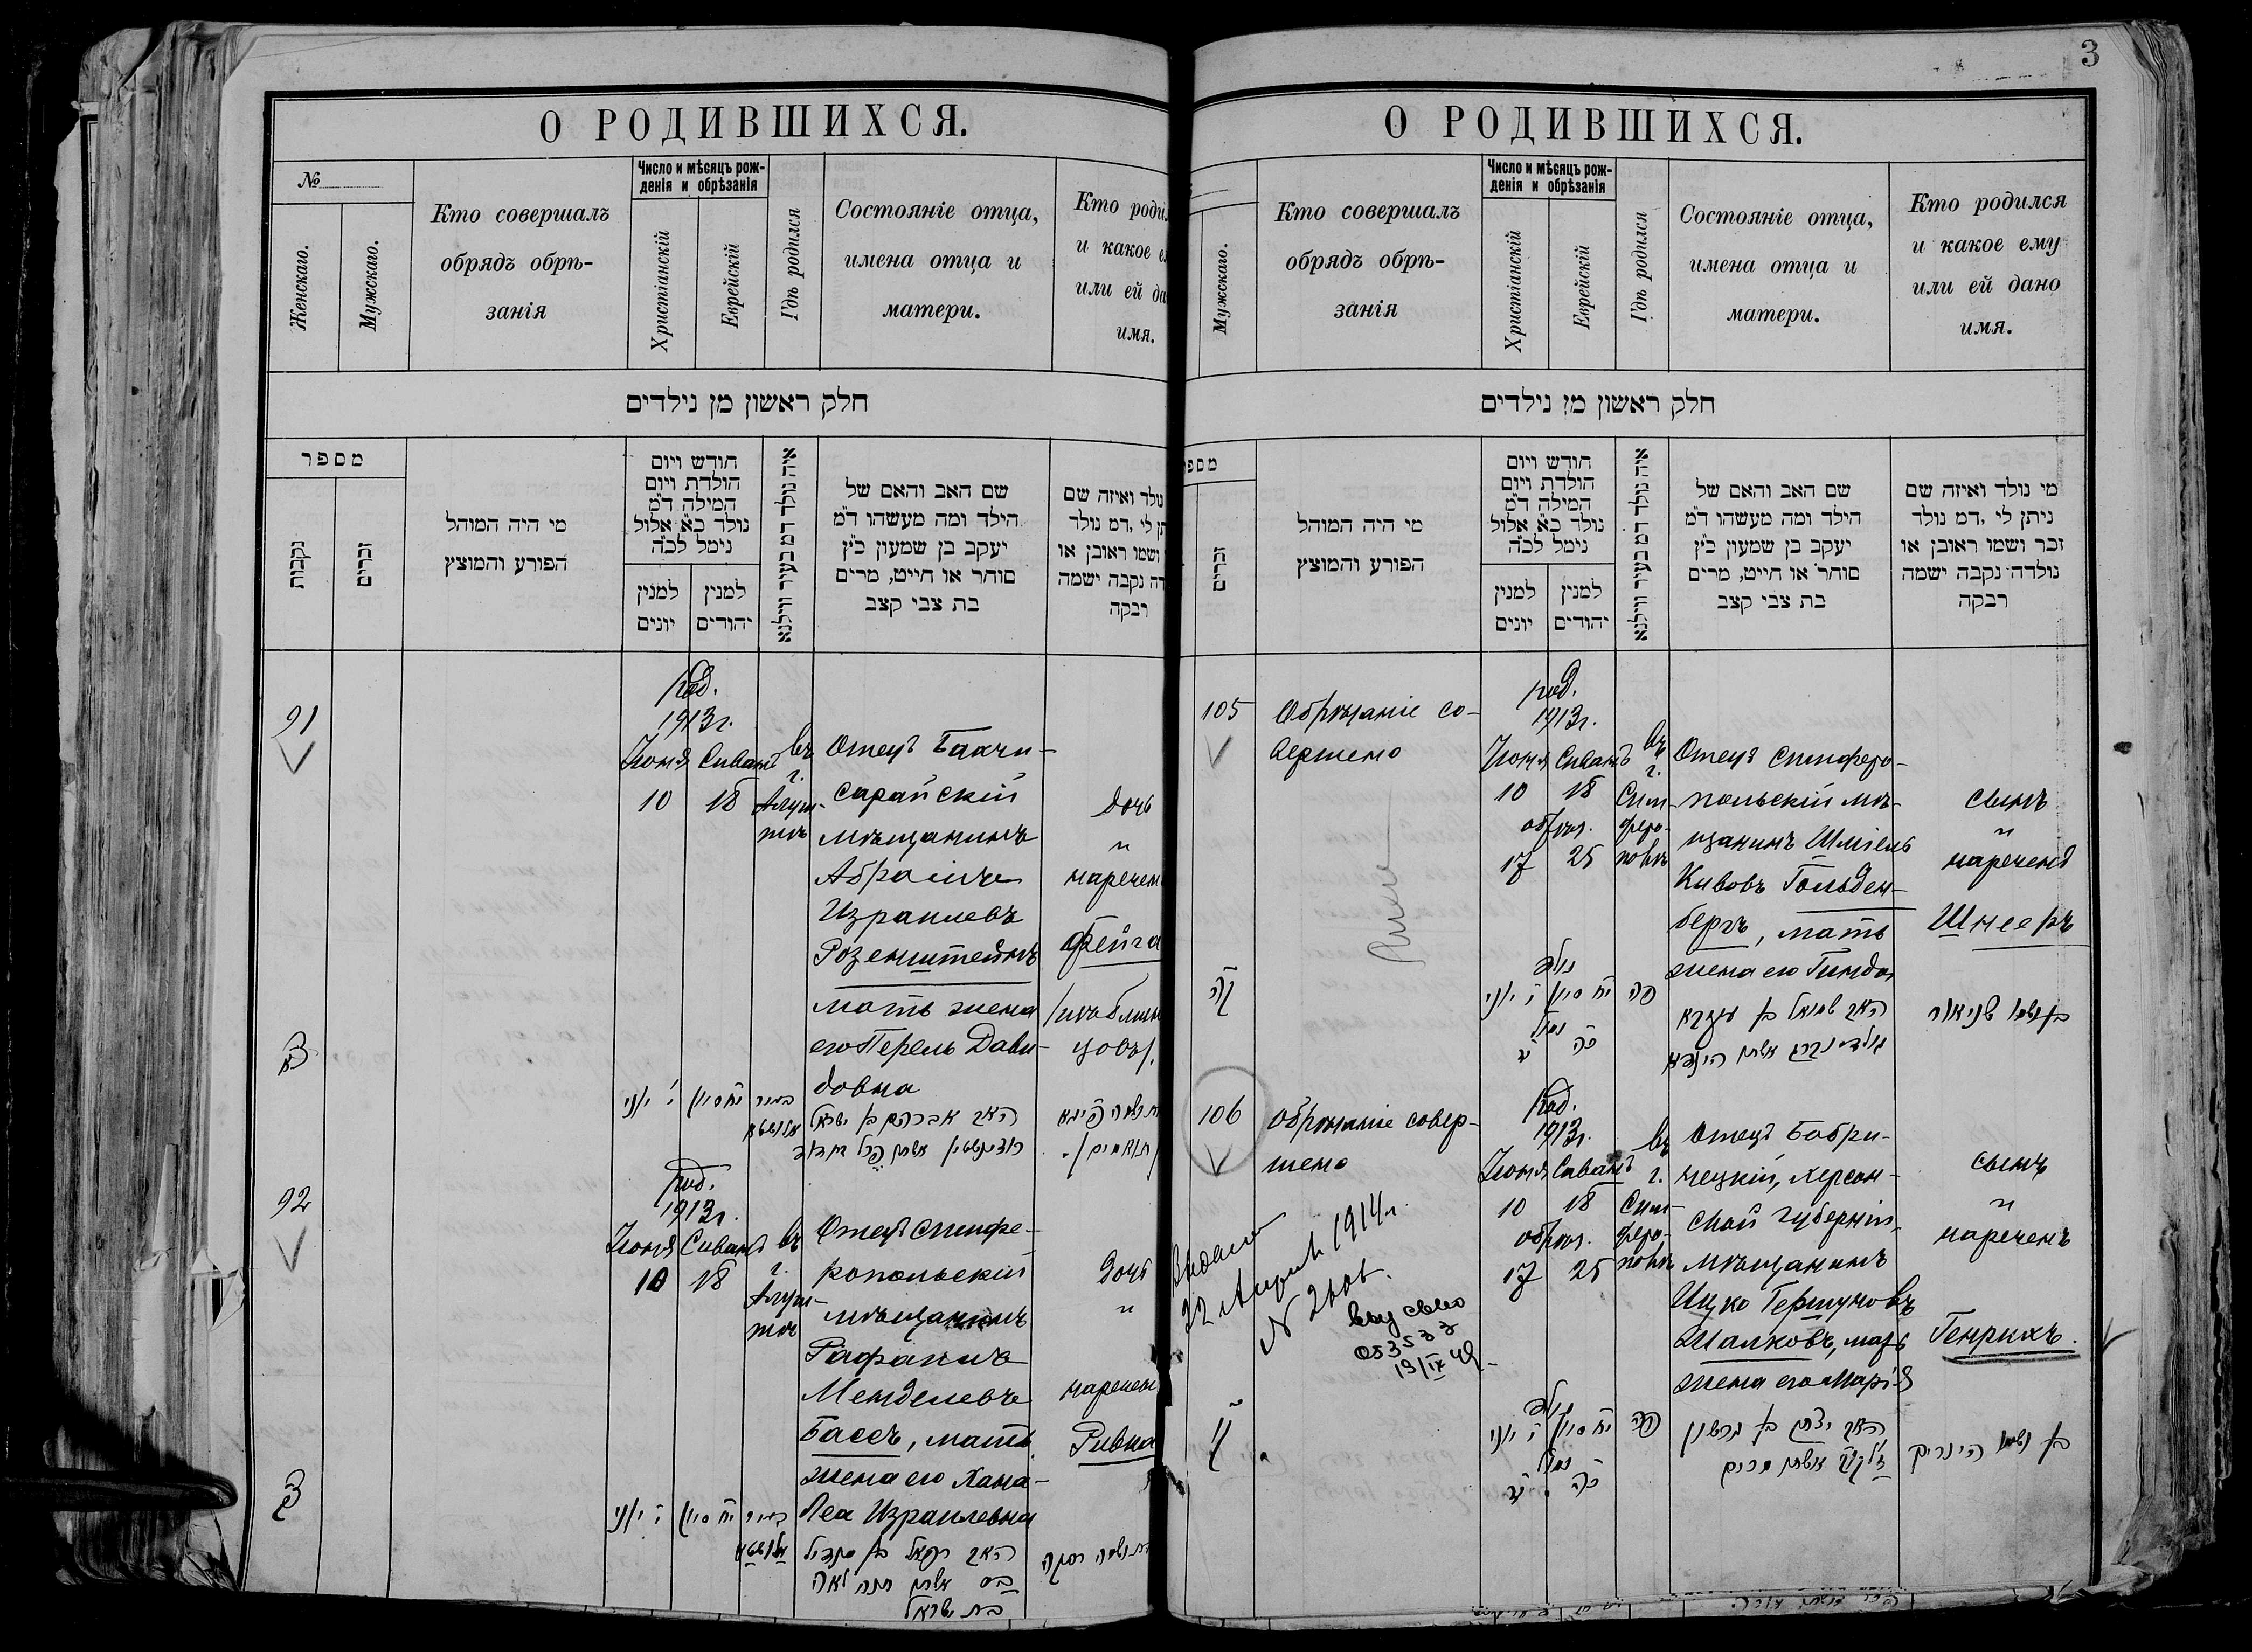 О РОДИВШИХСЯ.
№
Женскаго.
Мужскаго.
Кто совершалъ
обрядъ обрѣ-
занія
Число и мѣсяцъ рож-
денія и обрѣзанія
Христіанскій
Еврейскій
Гдѣ родился
Состояніе отца,
имена отца и
матери.
Кто роди
и какое е
или ей да
имя.
חלק ראשון מן נילדים
מספר
נקבות
זכרים
מי היה המוהל
הפורע והמוצץ
חודש ויום
הולדת ויום
המילה ד"מ
נולד כ"א אלול
נימל לכ"ה
למנין
יונים
למנין
יהודים
איה נולד דמ בעיר ווילנא
שם האב והאם של
הילד ומה מעשהו ד"מ
יעקב בן שמעון כ"ץ
סוחר או חייט, מרים
בת צבי קצב
נולד ואיזה שם
תן לי, דמ נולד
ושמו ראובן או
דה נקבה ישמה
רבקה
91
род.
1913 г.
Іюня Сиванъ
10 18
въ
г.
Алуш-
тѣ
Отецъ Бахчи-
сарайскій
мѣщанинъ
Абрамъ
Израилевъ
Розенштейнъ
мать жена
его Перель Дави-
довна
Дочь
"
наречен
Фейга
י' יוני
י"ח סיון
האב אברהם בן ישראל
92
род.
1913 г.
Іюня Сиванъ
10 18
въ
г.
Алуш-
тѣ
Отецъ Симфе-
ропольскій
мѣщанинъ
Рафаилъ
Менделевъ
Бассъ, мать
жена его Хана-
Леа Израилевна
Дочь
"
наречен
Ривка
י' יוני
י"ח סיון
האב רפאל בן מנדיל
בס אשתו חנה לאה
בת ישראל
3
О РОДИВШИХСЯ.
Мужскаго.
Кто совершалъ
обрядъ обрѣ-
занія
Число и мѣсяцъ рож-
денія и обрѣзанія
Христіанскій
Еврейскій
Гдѣ родился
Состояніе отца,
имена отца и
матери.
Кто родился
и какое ему
или ей дано
имя.
חלק ראשון מן נילדים
מספ
זכרים
מי היה המוהל
הפורע והמוצץ
חודש ויום
הולדת ויום
המילה ד"מ
נולד כ"א אלול
נימל לכ"ה
למנין
יונים
למנין
יהודים
איה נולד דמ בעיר ווילנא
שם האב והאם של
הילד ומה מעשהו ד"מ
יעקב בן שמעון כ"ץ
סוחר או חייט, מרים
בת צבי קצב
מי נולד ואיזה שם
ניתן לי, דמ נולד
זכר ושמו ראובן או
נולדה נקבה ישמה
רבקה
105
Обрѣзаніе со-
вершено
род.
1913 г.
Іюня Сиванъ
10 18
обрѣз.
17 25
въ
г.
Сим-
феро-
полѣ
Отецъ Симферо-
польскій мѣ-
щанинъ Шміель
Кивовъ Гольден-
бергъ, мать
жена его Гинда
сынъ
"
нареченъ
Шнееръ
נולד
י' יוני
י"ח סיון
פה
נימול
כ"ה
בן ושמו שניאור
106
Обрѣзаніе совер-
шено
род.
1913 г.
Іюня Сиванъ
10 18
обрѣз.
17 25
въ
г.
Сим-
феро-
полѣ
Отецъ Бобри-
нецкій, Херсон-
ской губерніи,
мѣщанинъ
Ицко Гершуновъ
Шалковъ, мать
жена его Марія
сынъ
"
нареченъ
Генрихъ.
22 1914 г.
№
19/IX
נולד
י' יוני
י"ח סיון
פה
נימול
כ"ה
האב יצחק בן גרשון
אשתו מרים
בן ושמו הינריך